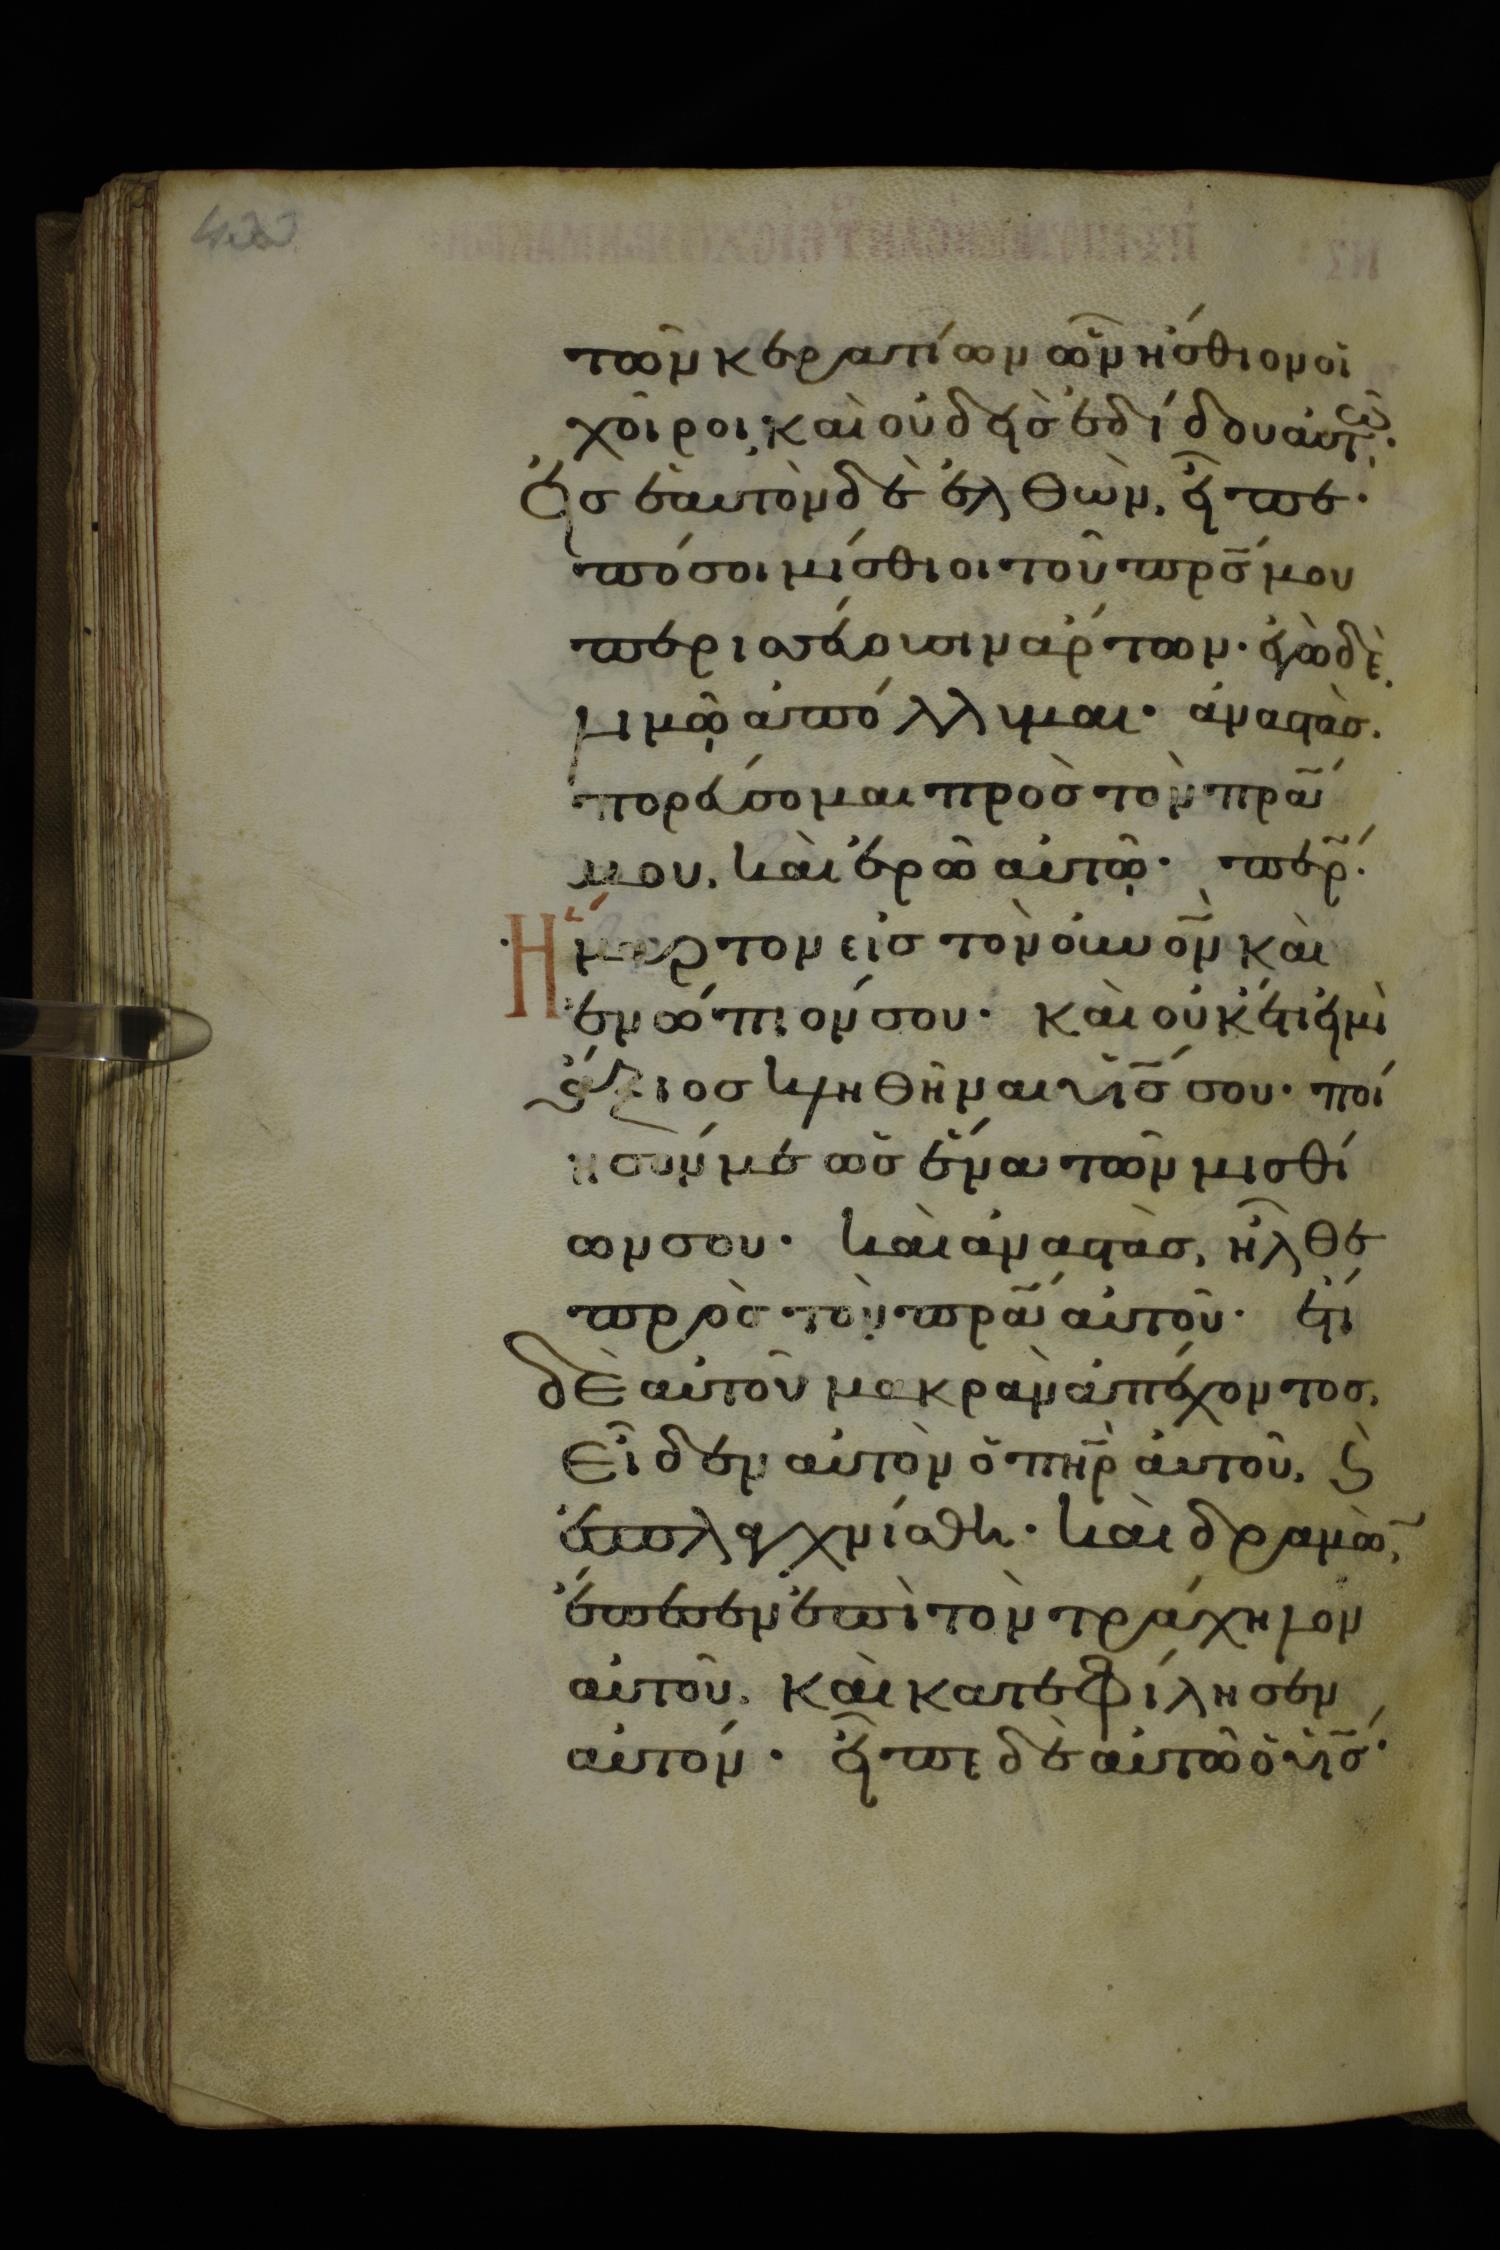 τῶν κερατίων ὧν ἤσθιον οἱ
χοῖροι· καὶ οὐδεὶς ἐδίδου αὐτῶ·
Εἰς ἑαυτὸν δὲ ἐλθὼν, εἶπε·
πόσοι μίσθιοι τοῦ πρς μου
περισσεύουσιν ἄρτων· ἐγὼ δὲ
λιμῷ ἀπόλλυμαι· ἀναστὰς.
πορεύσομαι πρὸς τὸν πρα
μου, καὶ ἐρῶ αὐτῷ· περ·
Ἥμαρτον εἰς τὸν οὐνον καὶ
ἐνώπιόν σου· καὶ οὐκέτι εἰμὶ
ἄξιος κληθῆναι υἱς σου· ποί
ησόν με ὡς ἕνα τῶν μισθί
ων σου· καὶ ἀναστὰς, ἦλθε
πρὸς τὸν πρα αὐτοῦ· ἔτι
δὲ αὐτοῦ μακρὰν ἀπέχοντος,
εἶδεν αὐτὸν ὁ πηρ αὐτοῦ, ϗ
ἐσπλαγχνίσθη· καὶ δραμὼ,
ἐπέπεσεν ἐπὶ τὸν τράχηλον
αὐτοῦ, καὶ κατεφίλησεν
αὐτόν· εἶπε δὲ αὐτῶ ὁ υἱς·